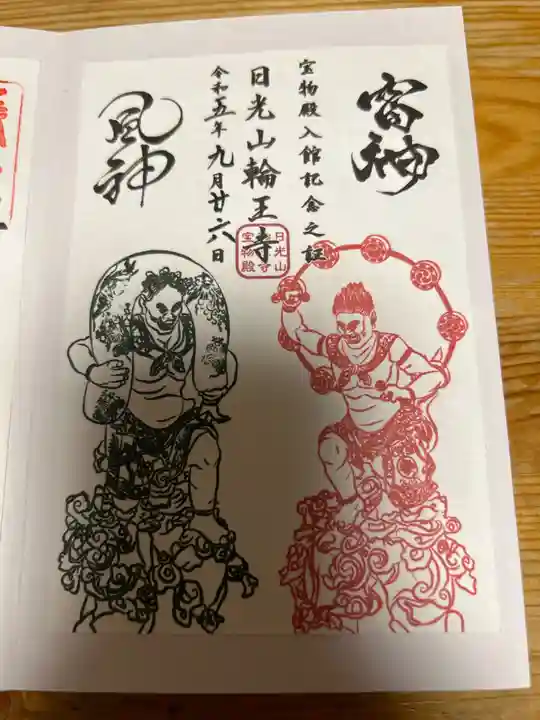 雷神
宝物殿入館記念之証
日光山輪王寺
令和五年九月廿六日
風神
日光山
宝物殿